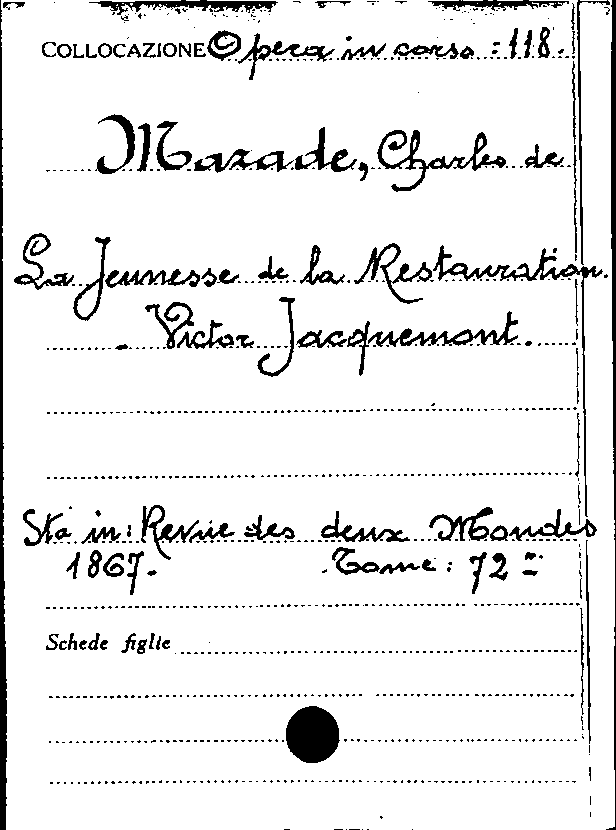 COLLOCAZIONE Opera in corso : 118.
Mazade, Charles de
La Jeunesse de la Restauration.
- Victor Jacquemont.
Sta in: Revue des deux Mondes
1867. Tome: 72
Schede figlie